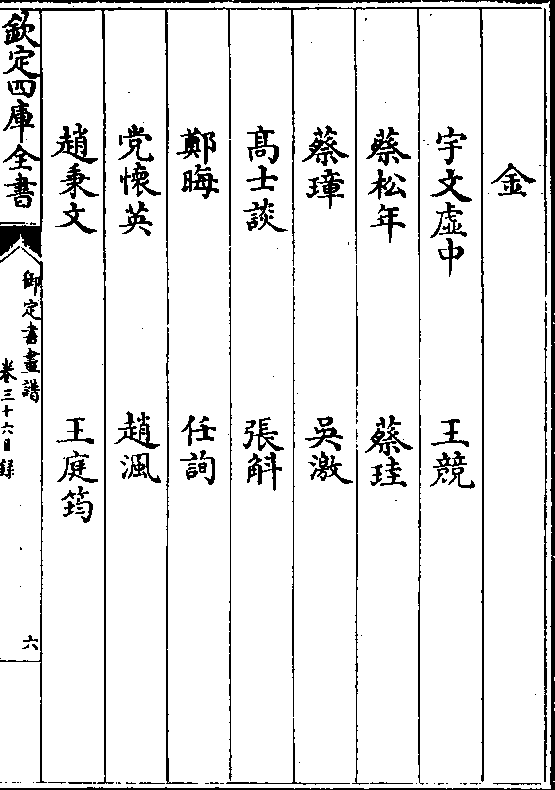 金
宇文虛中 王競
蔡松年 蔡珪
蔡璋 吳激
髙士談 張斛
鄭晦 任詢
党懷英 趙渢
趙秉文 王庭筠
欽定四庫全書
御定書畫譜
卷三十六目録
六